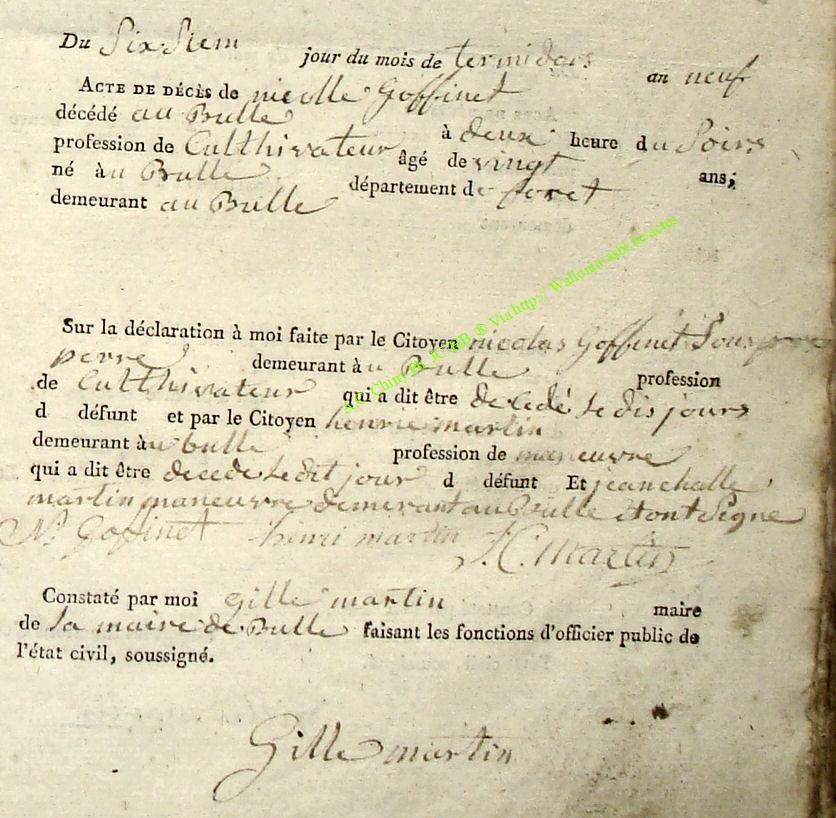 Du Six Siem jour du mois de termidors an neuf
ACTE DE DÉCÈS de nicolle Goffinet
décédé au Bulle à deux heure du Soirs
profession de Culthivateur âgé de vingt ans;
né àu Bulle département de foret
demeurant au Bulle
Sur la déclaration à moi faite par le Citoyen nicolas Goffinet Sous
perre demeurant àu Bulle profession
de Culthivateur qui a dit être decedé Le dis jours
d défunt et par le Citoyen henrie martin
demeurant àu bulle profession de maneuvre
qui a dit être decede Le dit jour d défunt Et jean challe
martin maneuvre demerant au Bulle et ont Signe
N. Goffinet henri martin J. C. Martin
Constaté par moi Gille martin maire
de La maire de Bulle faisant les fonctions d'officier public de
l'état civil, soussigné.
Gille martin